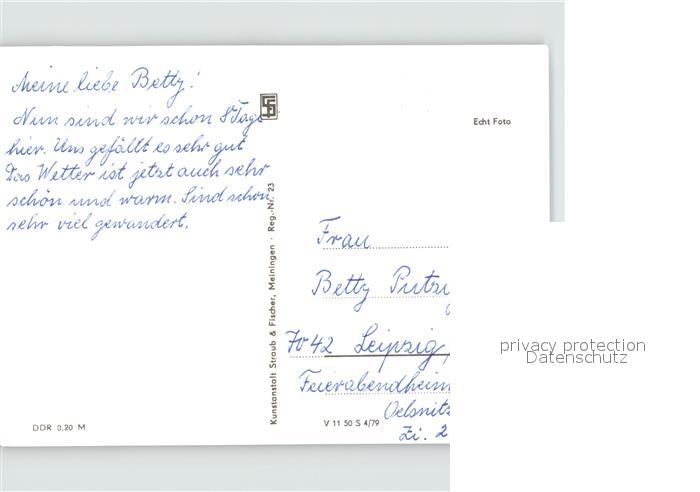 Meine liebe Betty!
Nun sind wir schon 8 Tage
hier. Uns gefällt es sehr gut
Das Wetter ist jetzt auch sehr
schön und warm. Sind schon
sehr viel gewandert.
Echt Foto
Kunstanstalt Straub & Fischer, Meiningen · Reg.-Nr. 23
Frau
Betty
7042 Leipzig,
Feierabendheim
Oelsnitz
Zi. 2
DDR 0,20 M
V 11 50 S 4/79
privacy protection
Datenschutz